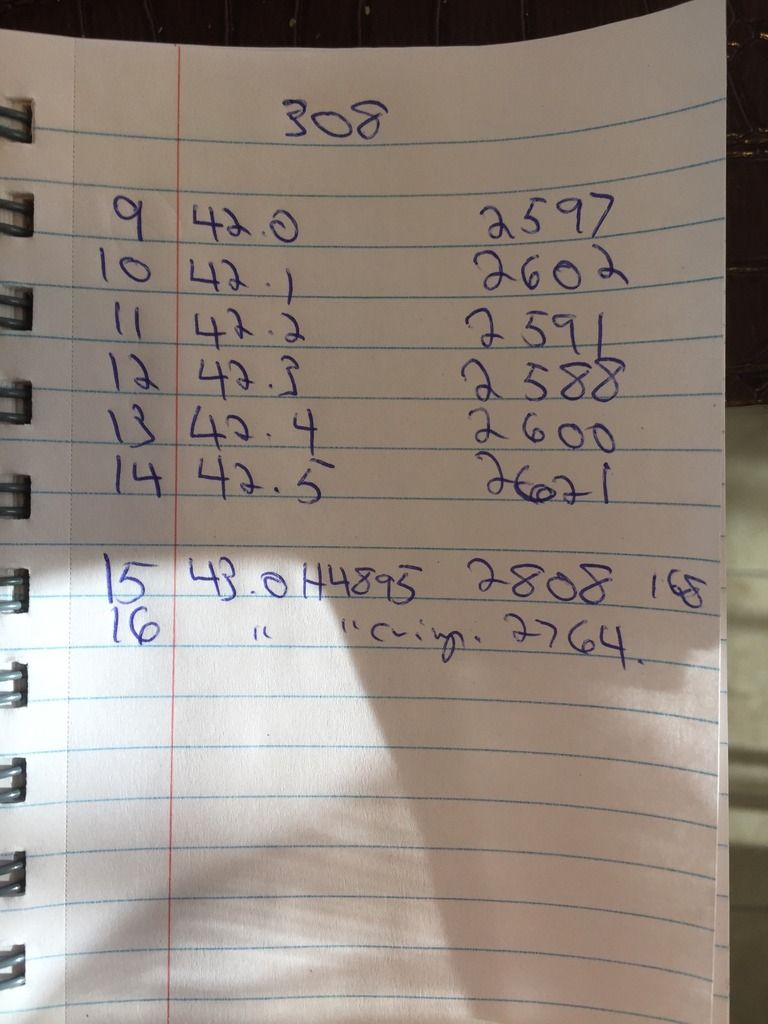 308
9 42.0 2597
10 42.1 2602
11 42.2 2591
12 42.3 2588
13 42.4 2600
14 42.5 2621
15 43.0 H4895 2808 168
16 " " crimp. 2764.